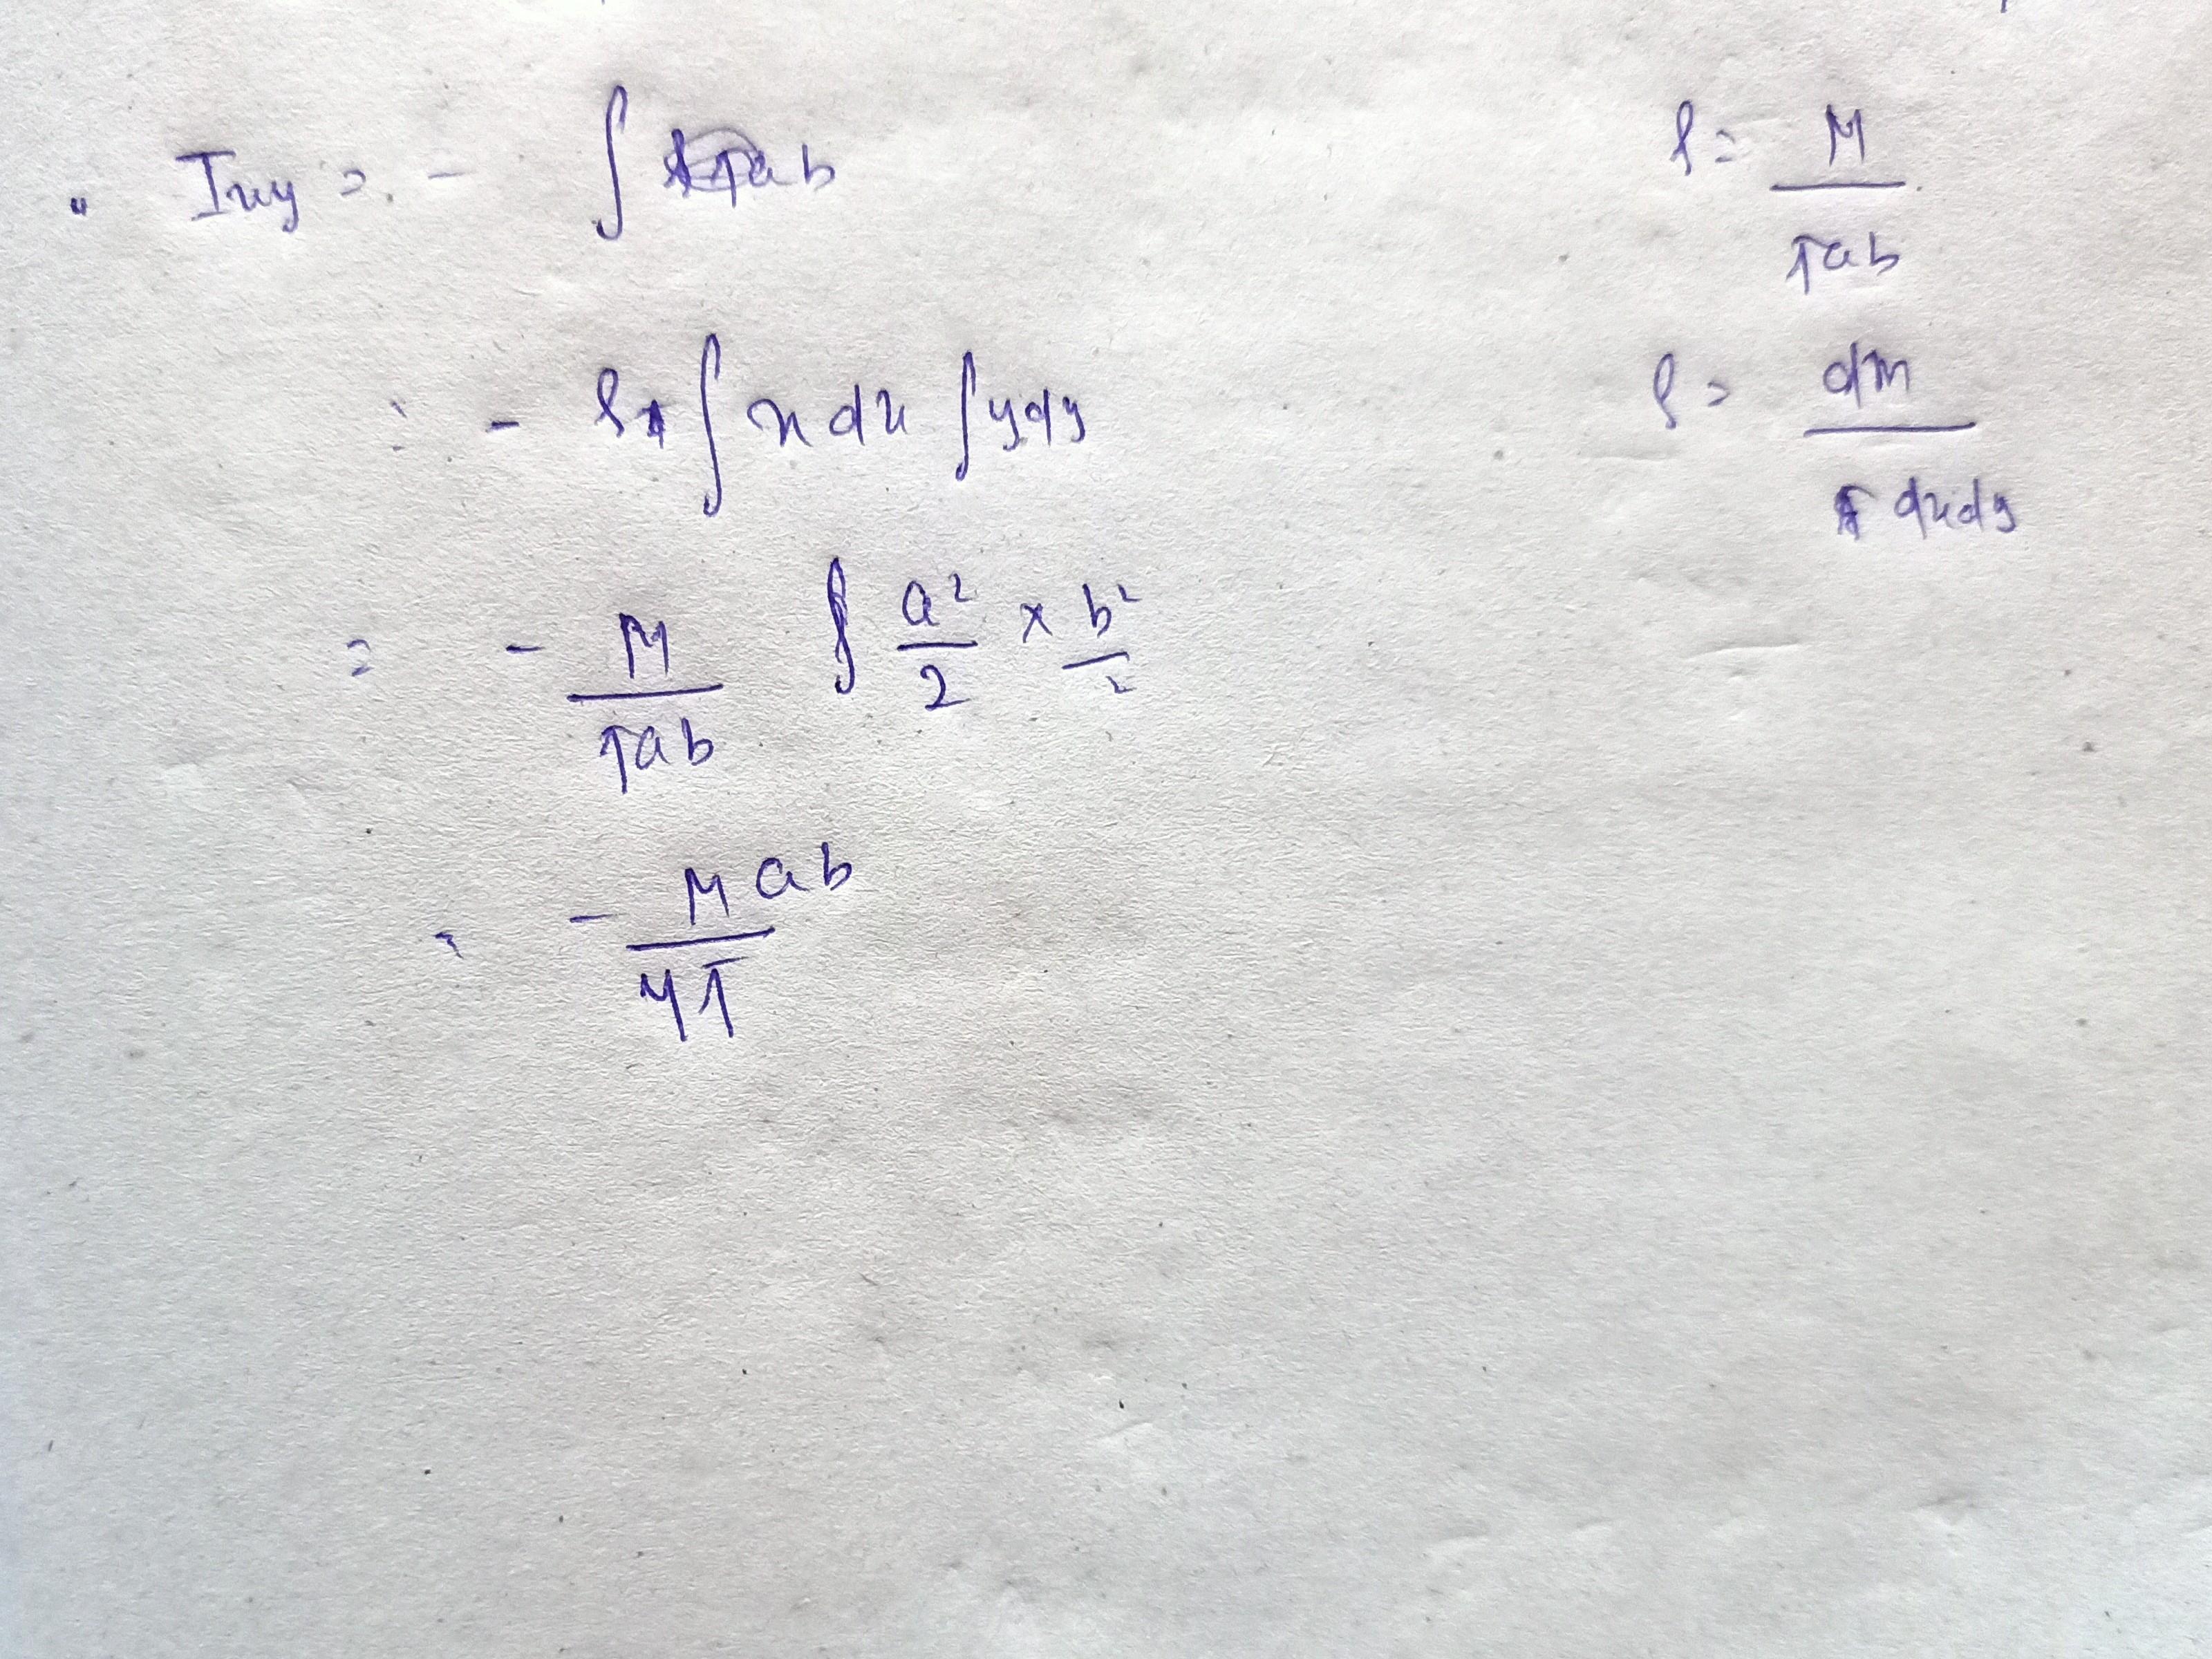 Ixy = - ∫ ab
= - ρ ∫ x dx ∫ y dy
= - M/πab a²/2 × b²/2
= - Mab/4π
ρ = M/πab
ρ = dm/dxdy